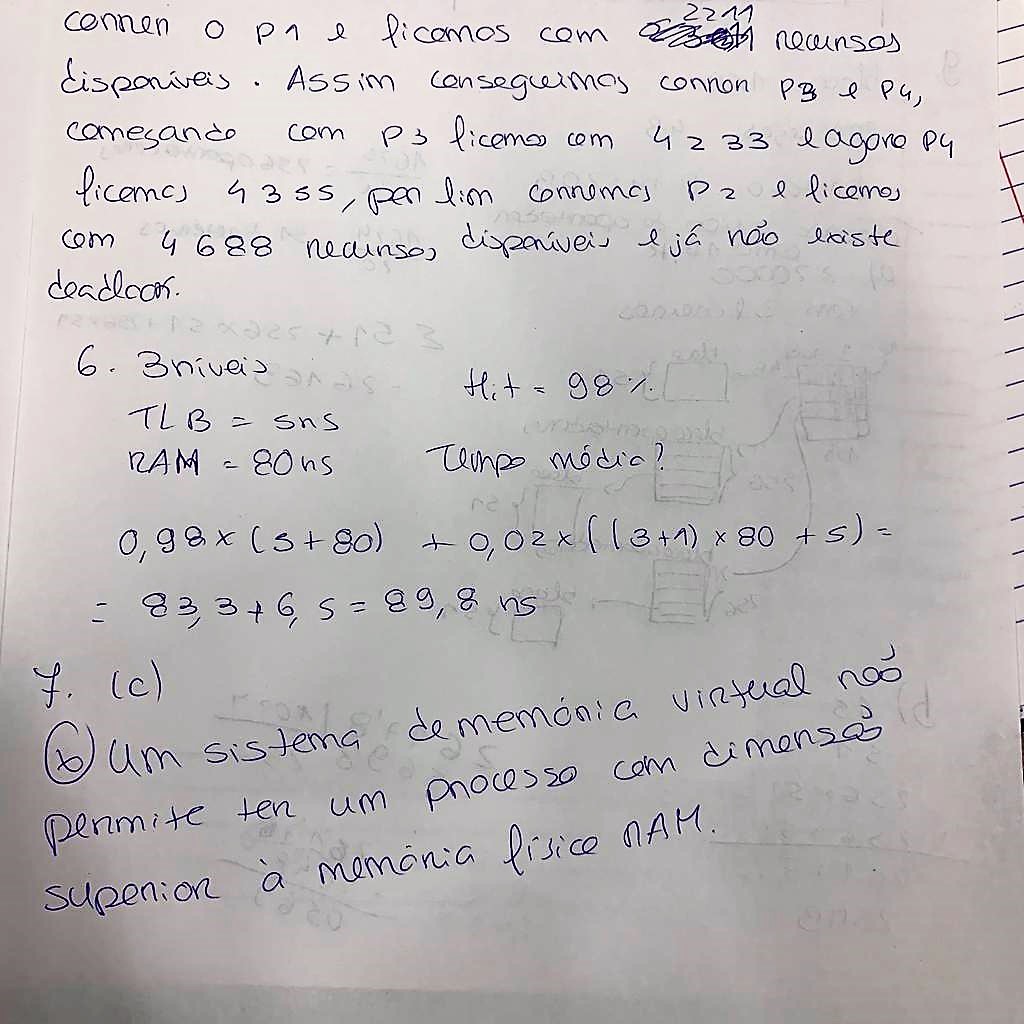 correr o P1 e ficamos com 2211 recursos
disponíveis. Assim conseguimos correr P3 e P4,
começando com P3 ficamos com 4233 e agora P4
ficamos 4355, por fim corremos P2 e ficamos
com 4688 recursos disponíveis e já não existe
deadlock.
6. 3 níveis
Hit = 98%.
TLB = 5ns
RAM = 80ns
Tempo médio?
0,98 x (5+80) + 0,02 x ((3+1) x 80 + 5) =
= 83,3 + 6,5 = 89,8 ns
7. (c)
(b) Um sistema de memória virtual não
permite ter um processo com dimensão
superior à memória física RAM.